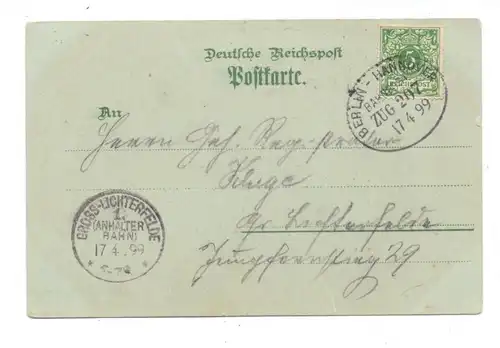 Deutsche Reichspost
Postkarte.
An
BERLIN - HANNOVER
BAHN
ZUG 207
17 4 99
Herrn Geh.
Kluge
Gr. Lichterfelde
Jungfernstieg 29
GROSS-LICHTERFELDE
1.
(ANHALTER
BAHN)
17 4.99